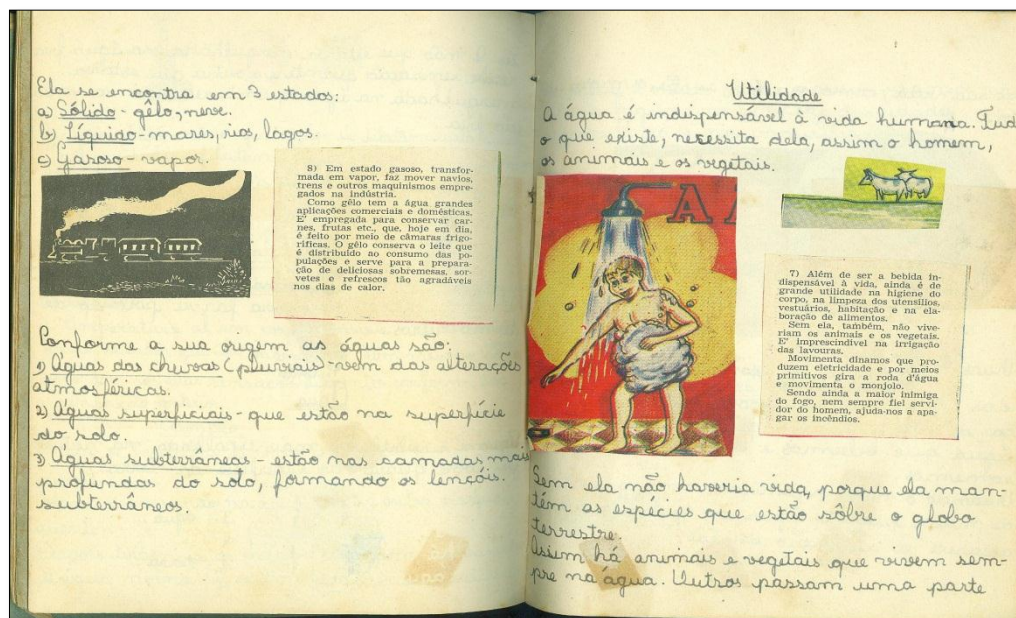 Ela se encontra em 3 estados:
a) Sólido - gêlo, neve.
b) Líquido - mares, rios, lagos.
c) Gasoso - vapor.
8) Em estado gasoso, transfor-
mada em vapor, faz mover navios,
trens e outros maquinismos empre-
gados na indústria.
Como gêlo tem a água grandes
aplicações comerciais e domésticas.
E' empregada para conservar car-
nes, frutas etc., que, hoje em dia,
é feito por meio de câmaras frigo-
rificas. O gêlo conserva o leite que
é distribuido ao consumo das po-
pulações e serve para a prepara-
ção de deliciosas sobremesas, sor-
vetes e refrescos tão agradáveis
nos dias de calor.
Conforme a sua origem as águas são:
1) Águas das chuvas (pluviais) - vem das alterações
atmosféricas.
2) Águas superficiais - que estão na superfície
do solo.
3) Águas subterrâneas - estão nas camadas mais
profundas do solo, formando os lençóis.
subterrâneos.
Utilidade
A água é indispensável à vida humana. Tud
o que existe, necessita dela, assim o homem,
os animais e os vegetais.
A A
7) Além de ser a bebida in-
dispensável à vida, ainda é de
grande utilidade na higiene do
corpo, na limpeza dos utensílios,
vestuários, habitação e na ela-
boração de alimentos.
Sem ela, também, não vive-
riam os animais e os vegetais.
E' imprescindivel na irrigação
das lavouras.
Movimenta dinamos que pro-
duzem eletricidade e por meios
primitivos gira a roda d'água
e movimenta o monjolo.
Sendo ainda a maior inimiga
do fogo, nem sempre fiel servi-
dor do homem, ajuda-nos a apa-
gar os incêndios.
Sem ela não haveria vida, porque ela man-
têm as espécies que estão sôbre o globo
terrestre.
Assim há animais e vegetais que vivem sem-
pre na água. Outros passam uma parte